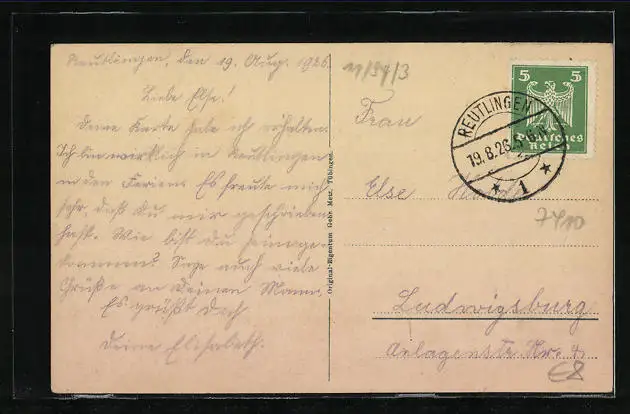 Reutlingen, den 19. Aug. 1926.
Liebe Else!
Deine Karte habe ich erhalten.
Ich bin wirklich in Reutlingen
in den Ferien. Es freute mich
sehr, daß du mir geschrieben
hast. Wie bist du heimge-
kommen? Sage auch viele
Grüße an Deinen Mann.
Es grüßt Dich
Deine Elisabeth.
Original-Eigentum Gebr. Metz, Tübingen.
11/34/3
Frau
Else
Ludwigsburg
Anlagenstr. Nr. 4
5 5
Deutsches
Reich
REUTLINGEN
19.8.26
* 1 *
7410